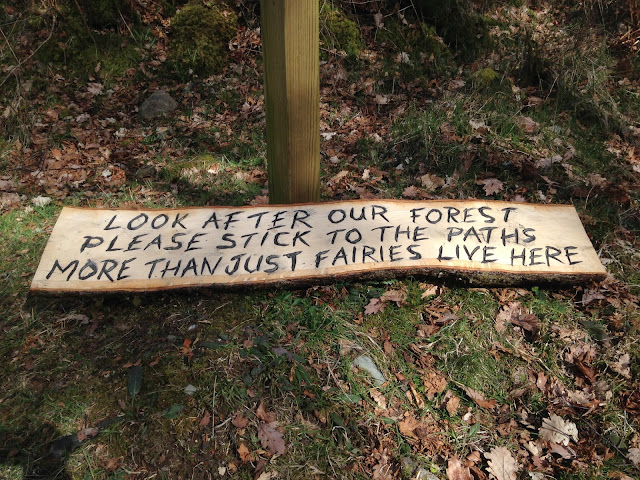 LOOK AFTER OUR FOREST
PLEASE STICK TO THE PATHS
MORE THAN JUST FAIRIES LIVE HERE